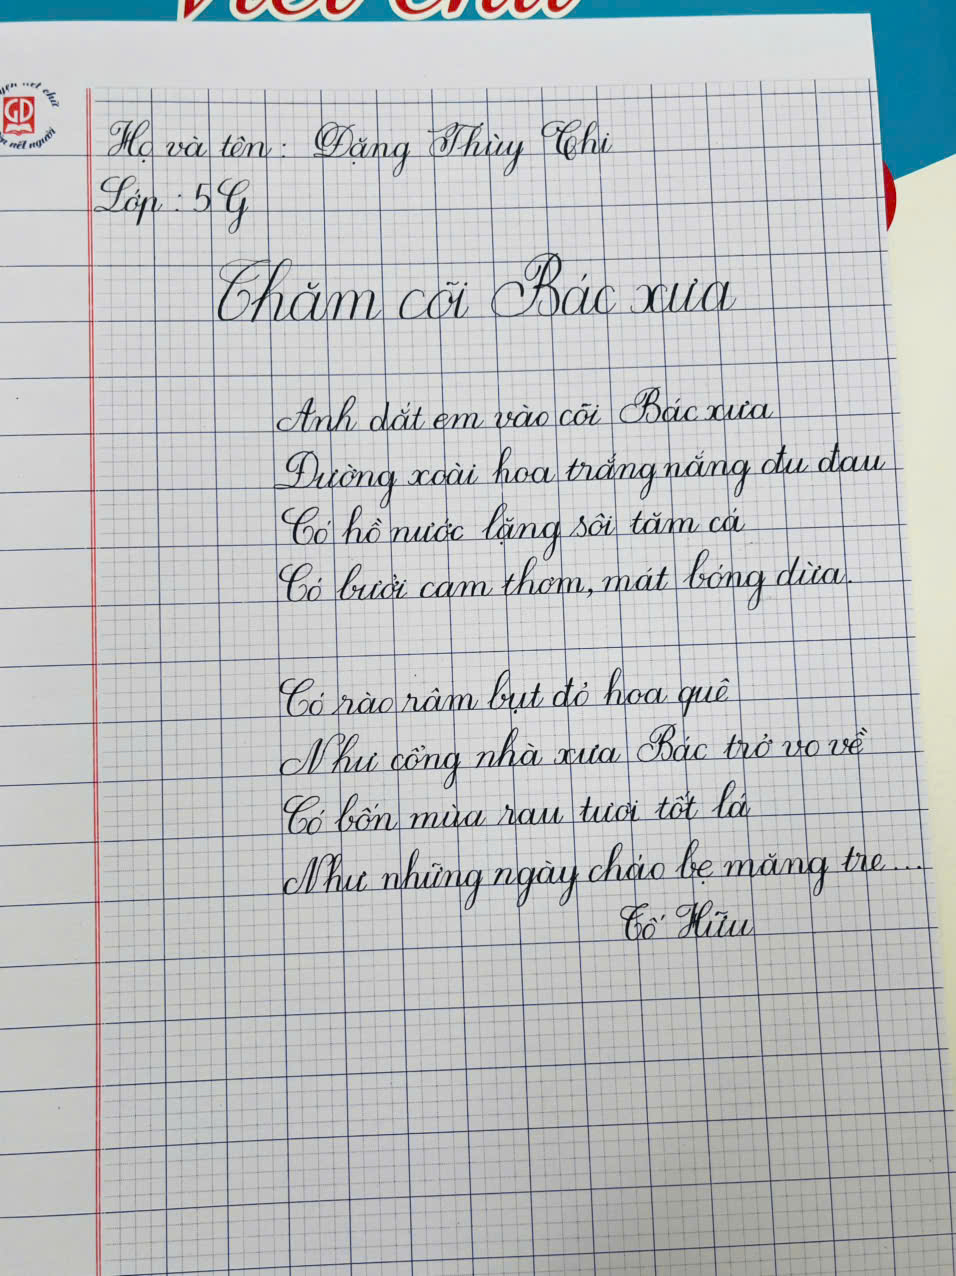 Viết chữ
nét chữ
GD
nết người
Họ và tên: Đặng Thùy Chi
Lớp: 5G
Thăm cõi Bác xưa
Anh dắt em vào cõi Bác xưa
Đường xoài hoa trắng nắng đu đưa
Có hồ nước lặng sôi tăm cá
Có bưởi cam thơm, mát bóng dừa.
Có rào râm bụt đỏ hoa quê
Như cổng nhà xưa Bác trở vo về
Có bốn mùa rau tươi tốt lá
Như những ngày cháo bẹ măng tre...
Tố Hữu